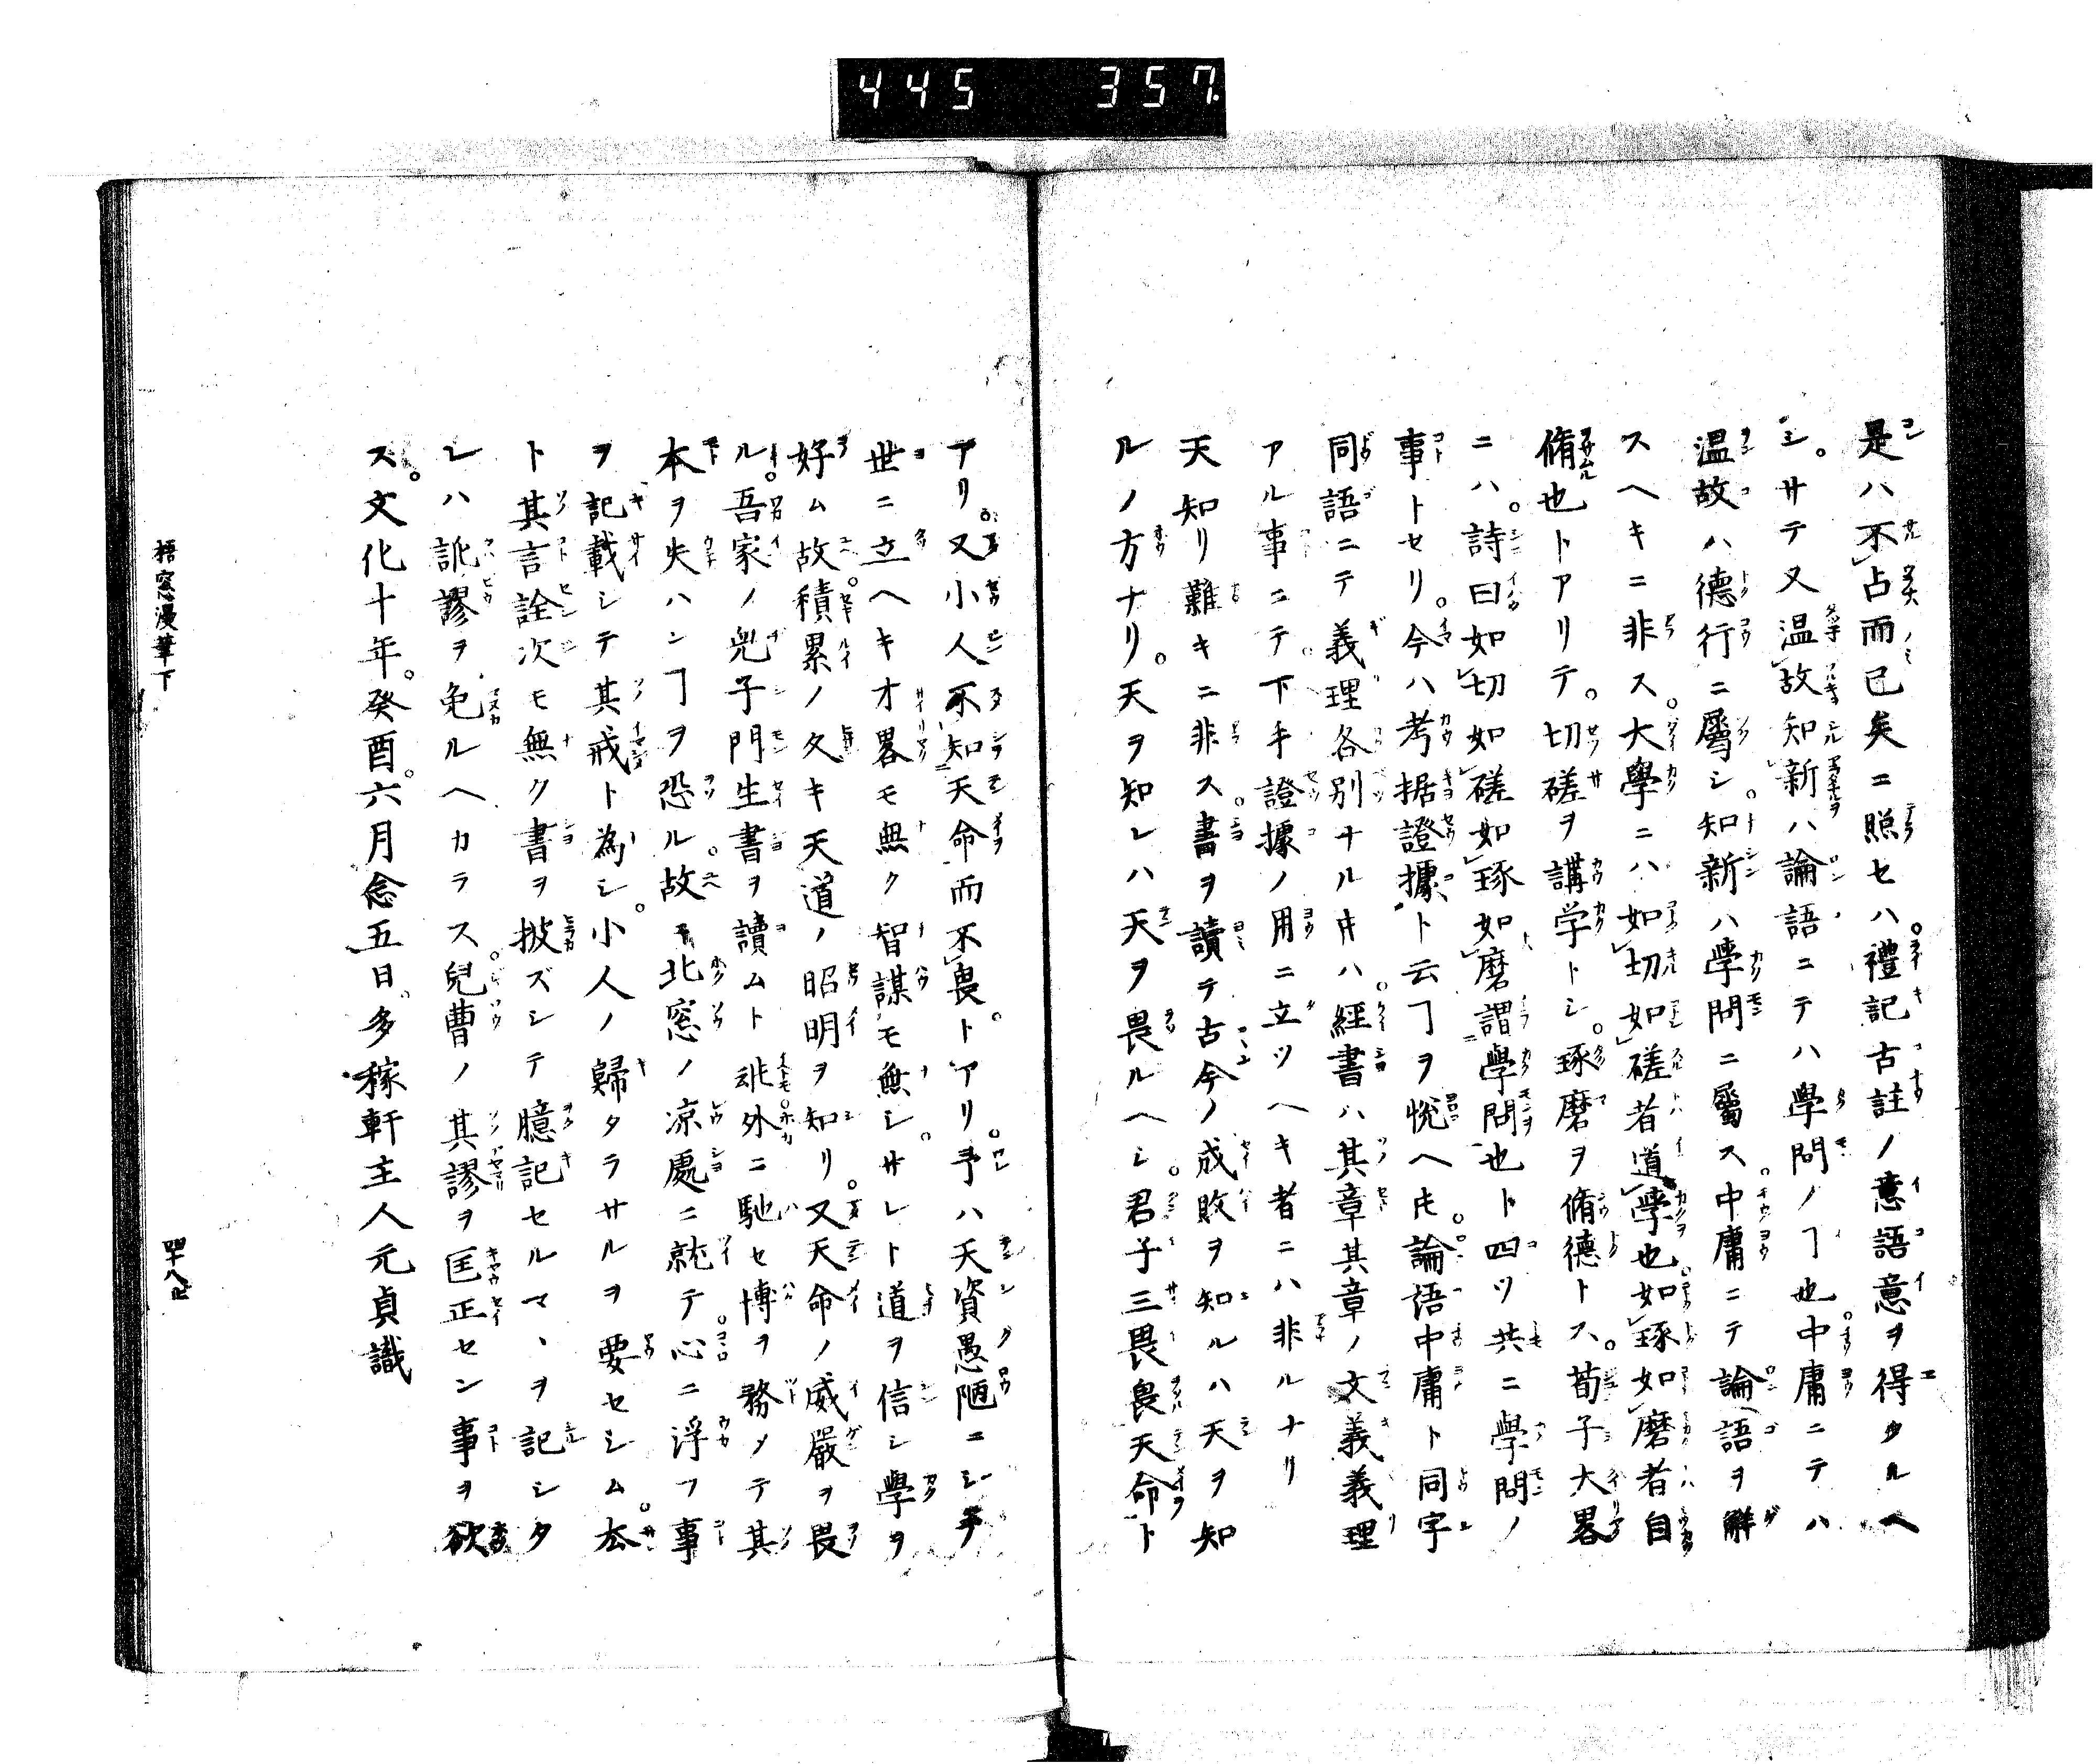 445 357
是ハ不占而已矣ニ照セハ。禮記古註ノ意語意ヲ得タルヘ
シ。サテ又温故知新ハ論語ニテハ學問ノヿ也。中庸ニテハ
温故ハ德行ニ屬シ。知新ハ學問ニ屬ス。中庸ニテ論語ヲ解
スヘキニ非ス。大學ニハ如切如磋者道學也。如琢如磨者自
脩也トアリテ。切磋ヲ講学トシ。琢磨ヲ脩德トス。荀子大畧
ニハ。詩曰如切如磋如琢如磨謂學問也ト四ツ共ニ學問ノ
事トセリ。今ハ考据證據ト云ヿヲ悅ヘ𪜈。論語中庸ト同字
同語ニテ義理各別ナル𪜈ハ。經書ハ其章其章ノ文義義理
アル事ニテ。下手證據ノ用ニ立ツヘキ者ニハ非ルナリ
天知リ難キニ非ス。書ヲ讀テ古今ノ成敗ヲ知ルハ天ヲ知
ルノ方ナリ。天ヲ知レハ天ヲ畏ルヘシ。君子三畏畏天命ト
アリ。又小人不知天命而不畏。トアリ。予ハ天資愚陋ニシテ
世ニ立ヘキオ畧モ無ク智謀モ無シ。サレト道ヲ信シ學ヲ
好ム故。積累ノ久キ天道ノ昭明ヲ知リ。又天命ノ威嚴ヲ畏
ル。吾家ノ兒子門生書ヲ讀ムト雖外ニ馳セ博ヲ務メテ其
本ヲ失ハンヿヲ恐ル。故ニ北窓ノ凉處ニ就テ。心ニ浮フ事
ヲ記載シテ其戒ト為シ。小人ノ歸タラサルヲ要セシム。尤
ト其言詮次モ無ク書ヲ披ズシテ臆記セルマヽヲ記シタ
レハ訛謬ヲ免ルヘカラス。兒曹ノ其謬ヲ匡正セン事ヲ欲
ス。文化十年。癸酉。六月念五日。多稼軒主人元貞識
梧窓漫筆下
四十八止